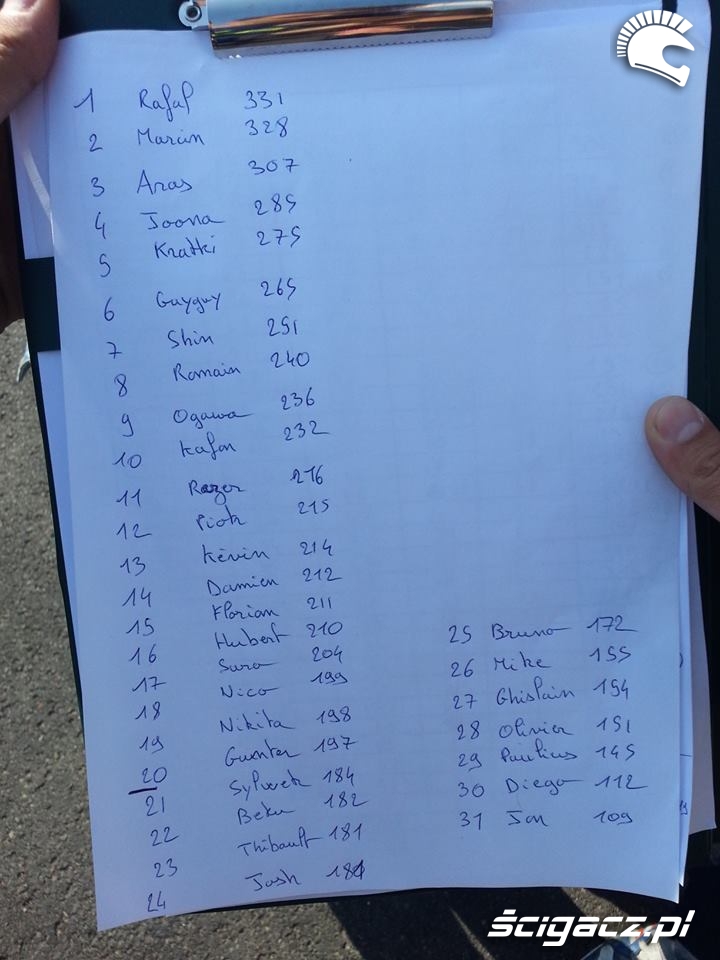 1 Rafał 331
2 Marcin 328
3 Aras 307
4 Joona 285
5 Kratki 275
6 Guyguy 265
7 Shin 251
8 Romain 240
9 Ogawa 236
10 Kafon 232
11 Razer 216
12 Piotr 215
13 Kévin 214
14 Damien 212
15 Florian 211
16 Hubert 210
17 Sara 204
18 Nico 199
19 Nikita 198
20 Gunter 197
21 Sylwek 184
22 Beku 182
23 Thibault 181
24 Josh 181
25 Bruno 172
26 Mike 155
27 Ghislain 154
28 Olivier 151
29 Paulius 145
30 Diego 112
31 Jan 109
ścigacz.pl